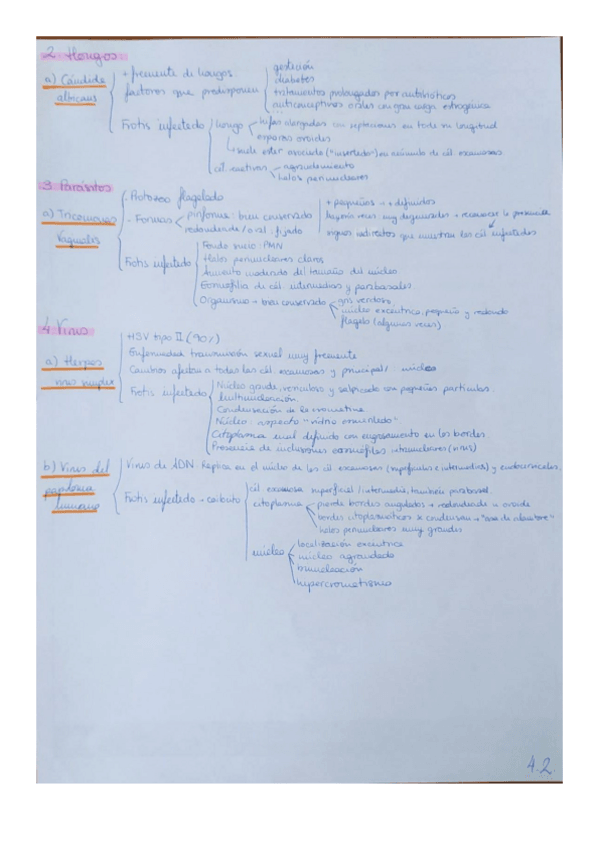 2. Hongos:
a) Cándida albicans
+ frecuente de hongos.
factores que predisponen
gestación
diabetes
tratamientos prolongados por antibióticos
anticonceptivos orales con gran carga estrogénica
Frotis infectado
hongo
hifas alargadas con septaciones en toda su longitud
esporas ovoides
suele estar asociada ("insertada") en cúmulo de cél. escamosas
cél. reactivas
agrandamiento
halos perinucleares
3. Parásitos
a) Tricomonas Vaginalis
- Protozoo flagelado
- Formas
piriforme: bien conservado
redondeada/oval: fijado
+ pequeños → + definidos
algunas veces muy degenerados → reconocer la presencia
signos indirectos que muestran las cél. infectadas
Frotis infectado
Fondo sucio: PMN
Halos perinucleares claros
Aumento moderado del tamaño del núcleo
Eosinofilia de cél. intermedias y parabasales
Organismo → bien conservado
gris verdoso
núcleo excéntrico, pequeño y redondo
flagelo (algunas veces)
4. Virus
a) Herpes virus simplex
HSV tipo II (90%)
Enfermedad transmisión sexual muy frecuente
Cambios afectan a todas las cél. escamosas y principal/ núcleo
Frotis infectado
Núcleo grande, vesiculoso y salpicado con pequeñas partículas.
Multinucleación.
Condensación de la cromatina
Núcleo: aspecto "vidrio esmerilado".
Citoplasma mal definido con engrosamiento en los bordes.
Presencia de inclusiones eosinófilas intranucleares
b) Virus del papiloma humano
Virus de ADN. Replica en el núcleo de las cél. escamosas (superficiales e intermedias) y endocervicales.
Frotis infectado → coilocito
cél. escamosa superficial/intermedia, también parabasal.
citoplasma
pierde bordes angulados → redondeada u ovoide
bordes citoplasmáticos se condensan →
halos perinucleares muy grandes
núcleo
localización excéntrica
núcleo agrandado
binucleación
hipercromatismo
4.2.